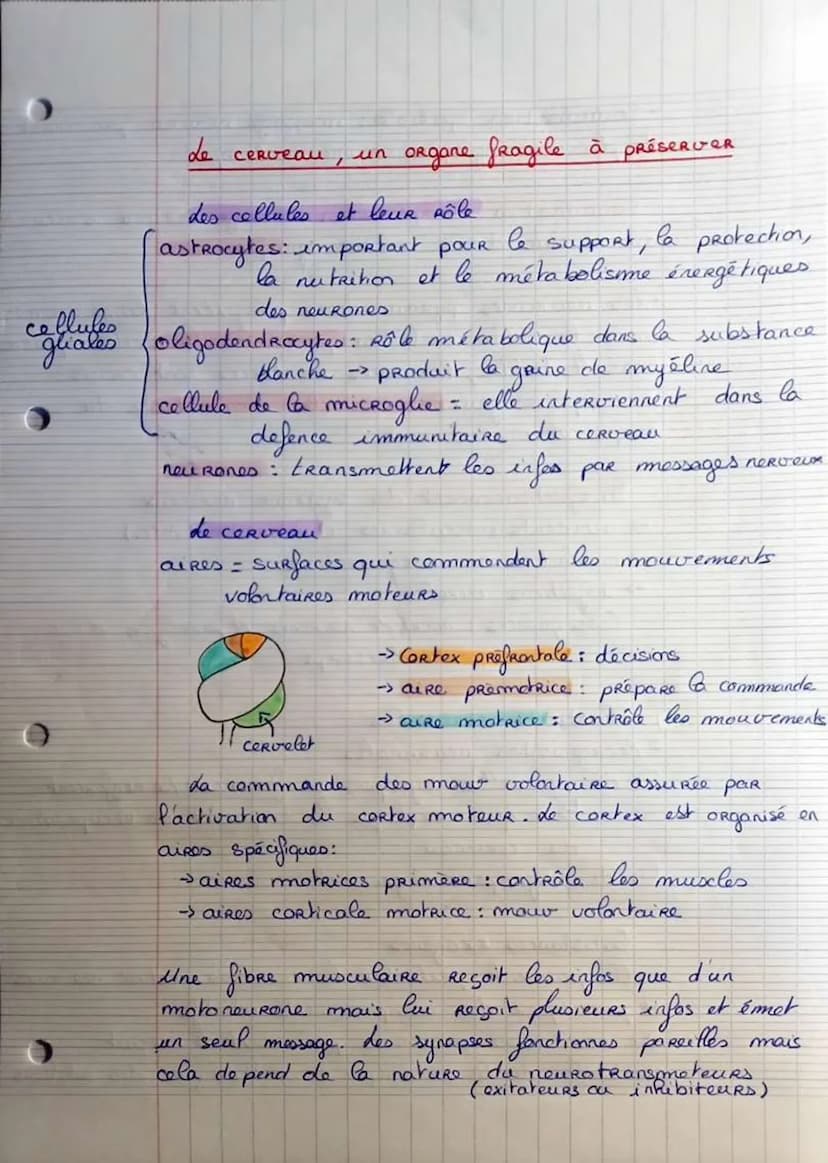 Le cerveau, un organe fragile à préserver
Les cellules et leur rôle
astrocytes : important pour le support, la protection,
la nutrition et le métabolisme énergétiques
des neurones
cellules
gliales
oligodendrocytes : rôle métabolique dans la substance
blanche -> produit la gaine de myéline
cellule de la microglie = elle interviennent dans la
defence immunitaire du cerveau
neurones : transmettent les infos par messages nerveux
Le cerveau
aires = surfaces qui commandent les mouvements
volontaires moteurs
-> Cortex préfrontale : décisions
-> aire prémotrice : prépare la commande
-> aire motrice : contrôle les mouvements
cervelet
La commande des mouv volontaire assurée par
l'activation du cortex moteur. Le cortex est organisé en
aires spécifiques :
-> aires motrices primère : contrôle les muscles
-> aires corticale motrice : mouv volontaire
Une fibre musculaire reçoit les infos que d'un
motoneurone mais lui reçoit plusieurs infos et émet
un seul message. Les synapses fonctionnes pareilles mais
cela depend de la nature du neurotransmeteurs
(exitateurs ou inhibiteurs)